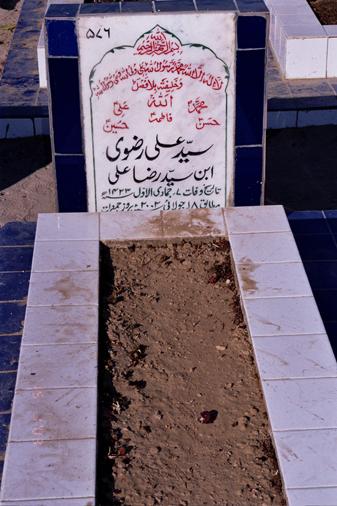 ۵۷۶
بسم اللہ الرحمن الرحیم
لا الہ الا اللہ محمد رسول اللہ علی ولی اللہ وصی رسول اللہ
و خلیفتہ بلا فصل
محمدؐ اللہ علیؑ
حسنؑ فاطمہؑ حسینؑ
سید علی رضوی
ابن سید رضا علی
تاریخ وفات ۷، جمادی الاول ۱۴۲۳ھ
مطابق ۱۸ جولائی ۲۰۰۲ء بروز جمعرات